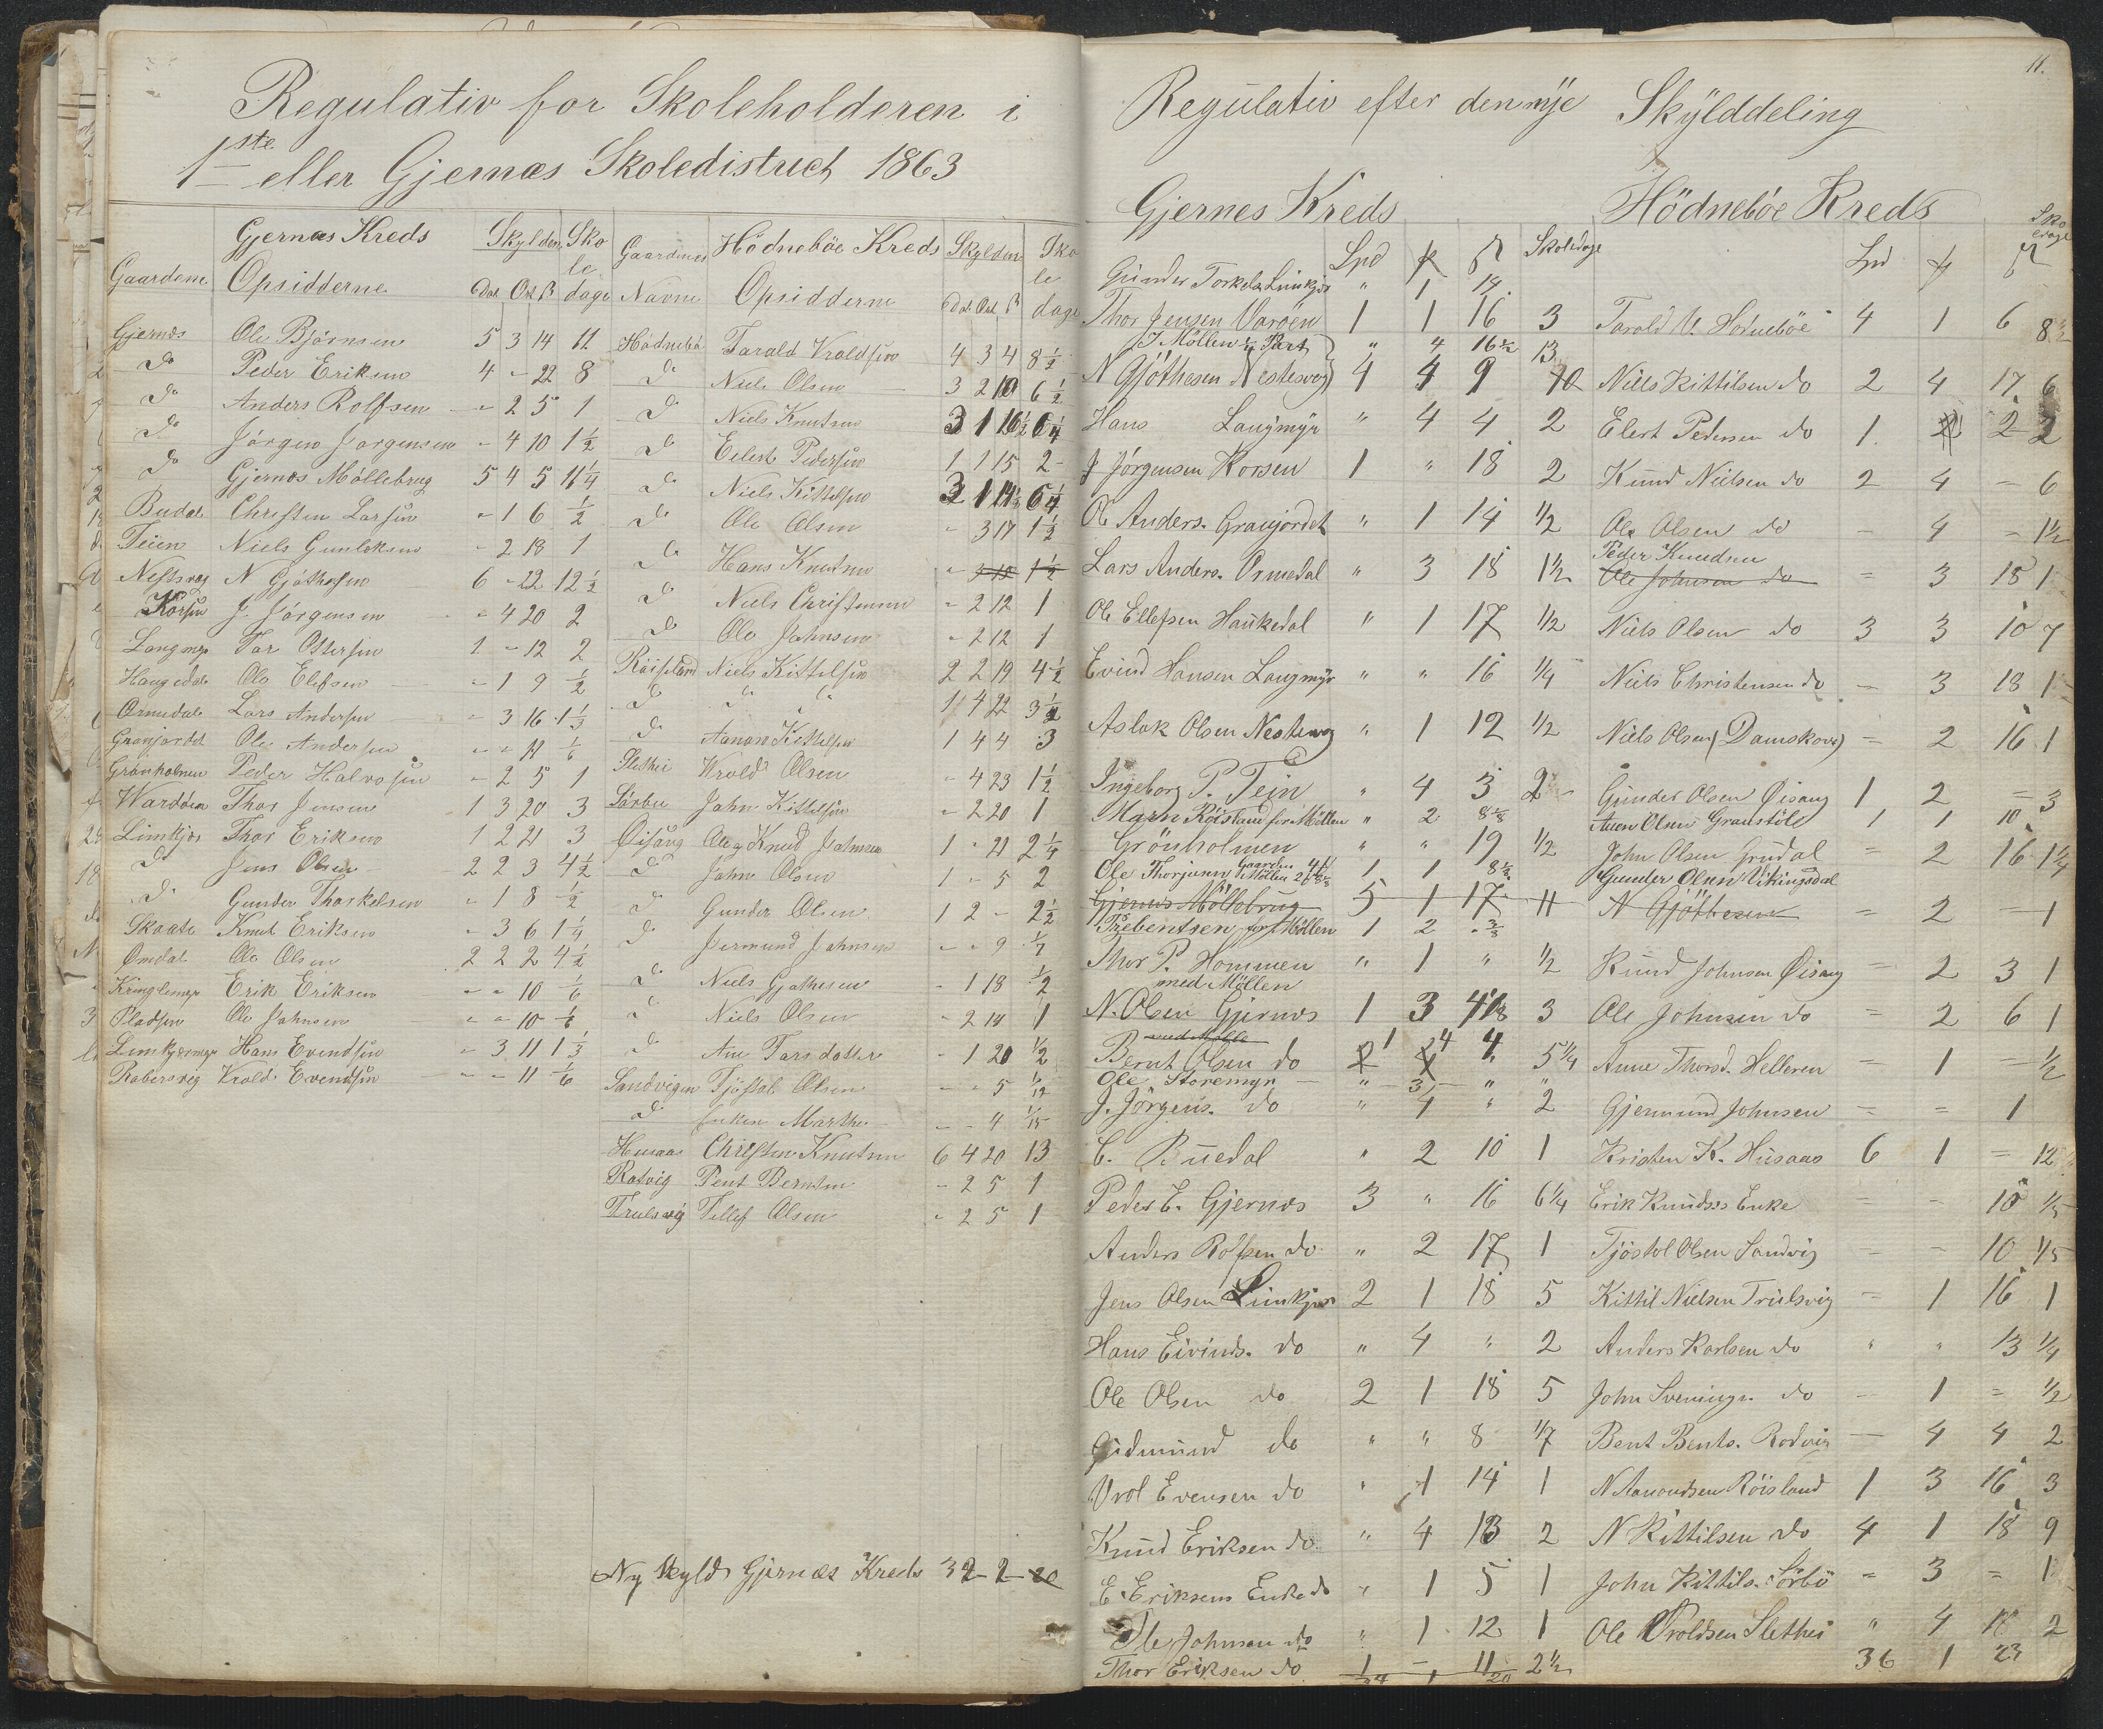 Regulativ for Skoleholderen i
1ste eller Gjernæs Skoledistrict 1863
Gjernæs Kreds Skylden Skoledage
Gaardene Opsidderne Dal Ort ß
Gjernæs Ole Bjørnsen 5 3 14 11
do Peder Eriksen 4 - 22 8
do Anders Rolfsen - 2 5 1
do Jørgen Jørgensen - 4 10 1 1/2
do Gjernæs Møllebrug 5 4 5 11 1/4
Budal Christen Larsen - 1 6 1/2
Teien Niels Gunleksen - 2 18 1
Nestsvag N Gjøthesen 6 - 22 12 1/2
Korsen J. Jørgensen - 4 20 2
Langmyr Tor Ottersen 1 - 12 2
Haugedal Ole Elefsen - 1 9 1/2
Ormdal Lars Andersen - 3 16 1 1/3
Granjordet Ole Andersen - - 11 1/6
Grønholmen Peder Halvorsen - 2 5 1
Wardøen Thor Jensen 1 3 20 3
Limkjær Thor Eriksen 1 2 21 3
do Jens Olsen 2 2 3 4 1/2
do Gunder Thorkelsen - 1 8 1/2
Skaate Knut Eriksen - 3 6 1 1/4
Omdal Ole Olsen 2 2 2 4 1/2
Kringlemyr Erik Eriksen - - 10 1/6
Pladsen Ole Johnsen - - 10 1/6
Limkjærmyr Hans Evendsen - 3 11 1 1/3
Robersvig Vrold Evendsen - - 11 1/6
Gaardenes Navne Hödneböe Kreds Skylden Skoledage
Opsidderne Dal Ort ß
Hödnebö Tarald Vroldsen 4 3 4 8 1/2
do Niels Olsen 3 2 10 6 1/2
do Niels Knutsen 3 1 16 1/2 6 1/4
do Eilert Pedersen 1 1 15 2
do Niels Kittelsen 3 1 14 1/2 6 1/4
do Ole Olsen - 3 17 1 1/2
do Hans Knutsen - 3 18 1 1/2
do Niels Christensen - 2 12 1
do Ole Johnsen - 2 12 1
Röisland Niels Kittelsen 2 2 19 4 1/2
do " " 1 4 22 3 1/2
do Aanon Kittelsen 1 4 4 3
Slethei Vrold Olsen - 4 23 1 1/2
Sörbu John Kittelsen - 2 20 1
Öisang Ole og Knud Johnsen 1 - 21 2 1/4
do John Olsen 1 - 5 2
do Gunder Olsen 1 2 - 2 1/2
do Jermund Johnsen - - 9 1/7
do Niels Gjøthesen - 1 18 1/2
do Niels Olsen - 2 18 1
do Ane Tarsdatter - 1 20 1/2
Sandvigen Tjöstol Olsen - - 5 1/12
do Enken Marthe - - 4 1/15
Husaas Christen Knutsen 6 4 20 13
Rotvig Bent Berntsen - 2 5 1
Trulsvig Tellef Olsen - 2 5 1
Ny Skyld Gjernæs Kreds 32 - 2 - 20
11.
Regulativ efter den nye Skylddeling
Gjernes Kreds
Spd Skoledage
Gunder Torkels. Limkjær " 1 14
Thor Jensen Varøen 1 1 16 3
I Møllen 1/4 Part " 4 16 1/2 13
N Gjöthesen Nestesvag 4 4 9 10
Hans Langmyr " 4 4 2
J Jørgensen Korsen 1 " 18 2
Ole Anders. Granjordet " 1 14 1/2
Lars Anders. Ormedal " 3 18 1 1/2
Ole Ellefsen Haukedal " 1 17 1/2
Evind Hansen Langmyr " " 16 1/4
Aslak Olsen Nestesvag " 1 12 1/2
Ingeborg P. Tein " 4 3 2
Marn Röisland for Møllen " 2 8 3/8
Grönholmen " " 19 1/2
Ole Thorjussen Gaarden Møllen 1 1 8
Gjernæs Møllebrug 5 1 17 11
T. Bentsen for Møllen 1 2
Thor P. Hommen " 1 " 1/2
med Møllen
N. Olsen Gjernæs 1 3 418 3
Bernt Olsen do 2 1 4 4 5 1/4
Ole Storemyr " 3 " "
J. Jørgens. do " 4 " 2
C. Buedal " 2 10 1
Peder E. Gjernæs 3 " 16 6 1/4
Anders Rolfsen do " 2 17 1
Jens Olsen Limkjær 2 1 18 5
Hans Eivinds. do " 4 " 2
Ole Olsen do 2 1 18 5
Gudmund do " " 8 1/7
Vrol Evensen do " 1 14 1
Knud Eriksen do " 4 13 2
E. Eriksens Enke do " 1 5 1
Ole Johnsen do " 1 12 1
Thor Eriksen do 1 - 11 2 1/2
Hödneböe Kreds
Skoledage
Tarald V. Hödneböe 4 1 6 8 1/2
Niels Kittilsen do 2 4 17 6
Elert Pedersen do 1 2 2
Knud Nielsen do 2 4 - 6
Ole Olsen do - 4 - 1 1/2
Peder Knudsen
Ole Johnsen do = 3 18 1
Niels Olsen do 3 3 10 7
Niels Christensen do - 3 18 1
Niels Olsen (Damskov) - 2 16 1
Gunder Olsen Øisang 1 2 = 3
Anen Olsen Granstöl 1 1 10
John Olsen Grudal = 2 16 1 1/4
Gunder Olsen Vikingsdal
N Gjöthesen = 2 - 1
Knud Johnsen Øisang - 2 3 1
Ole Johnsen do = 2 6 1
Anne Thorsd. Helleren - 1 - 1/2
Gjermund Johnsen - = 1
Kristen K. Husaas 6 1 = 12
Erik Knudses Enke - - 10 1/5
Tjöstol Olsen Sandvig - - 10 1/5
Kittil Nielsen Trulsvig - 1 16 1
Anders Karlsen do " " 13 1/4
John Svenings. do - 1 = 1/2
Bent Bents. Rodvig - 4 4 2
N Aanondsen Röisland 1 3 16 3
N Kittilsen do 4 1 18 9
John Kittils. Sörbö = 3 = 1
Ole Vroldsen Slethei " 4 18 2
36 1 23